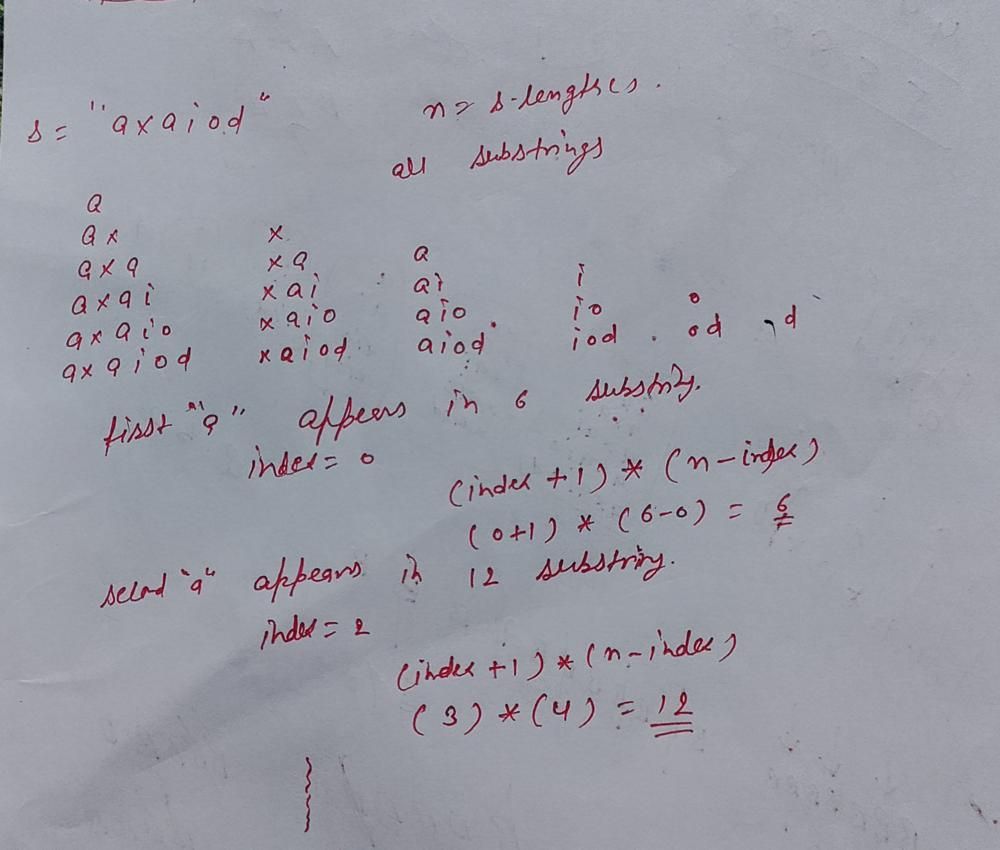 s = "axaiod"
n = s.length().
all substrings
a
ax x
axa xa a
axai xai ai i
axaio xaio aio io o
axaiod xaiod aiod iod od d
first "a" appears in 6 substring.
index = 0
(index + 1) * (n - index)
(0+1) * (6-0) = 6
second "a" appears in 12 substring.
index = 2
(index + 1) * (n - index)
(3) * (4) = 12